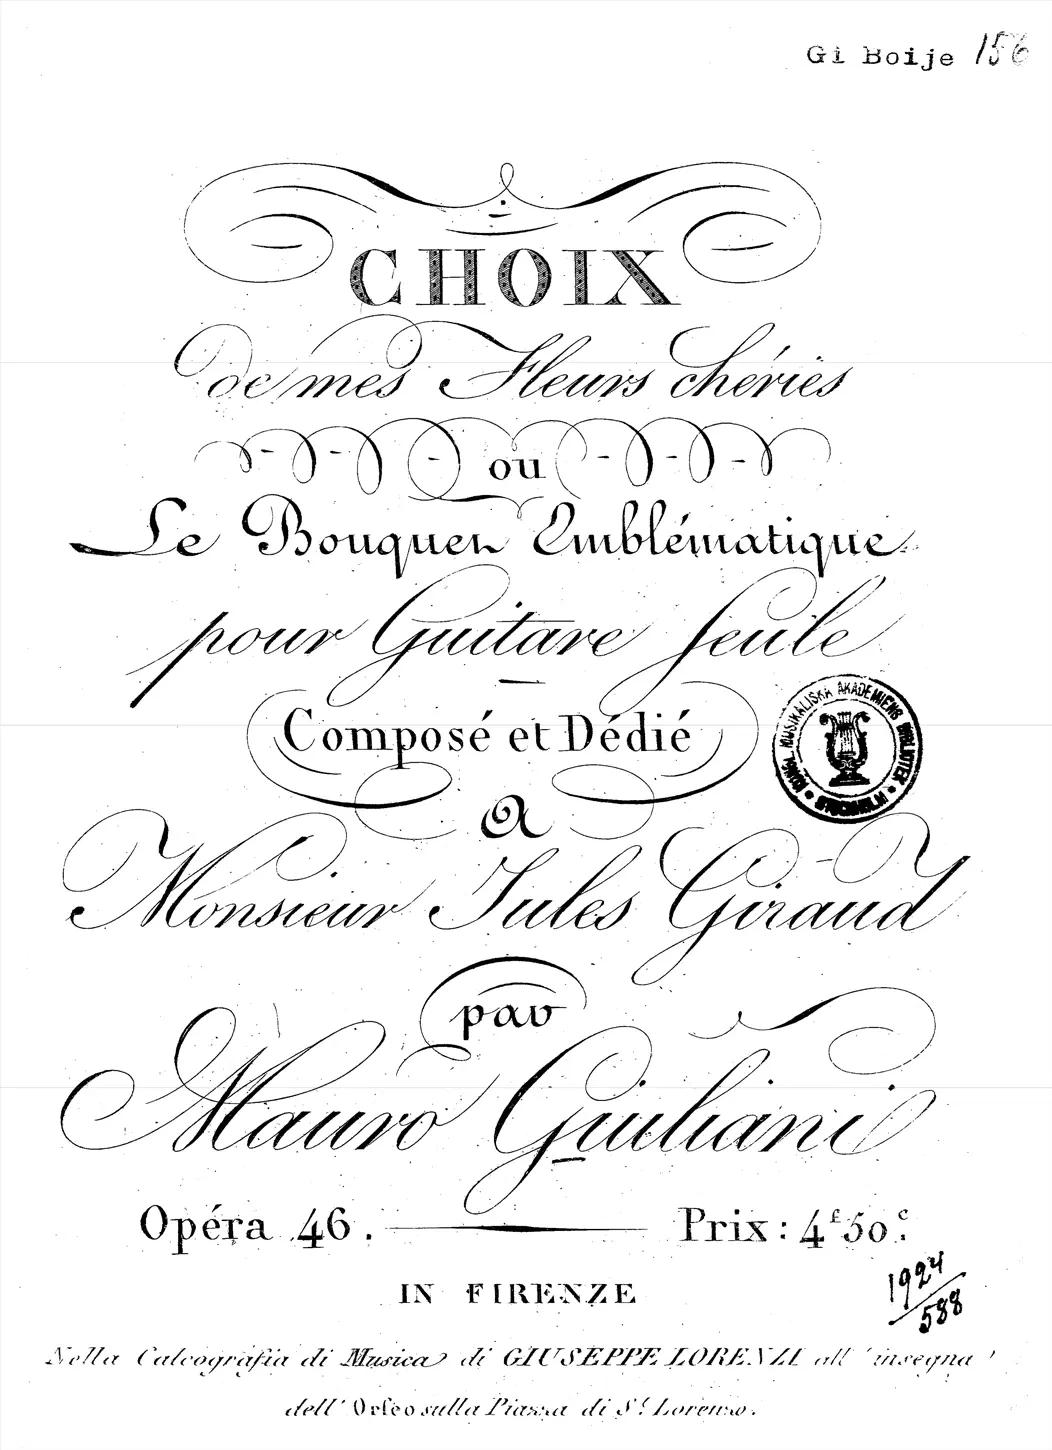 Gi Boije 156
CHOIX
de mes Fleurs chéries
ou
Le Bouquet Emblématique
pour Guitare Seule
Composé et Dédié
A
Monsieur Jules Giraud
par
Mauro Giuliani
Opéra 46. Prix: 4f 50c.
IN FIRENZE
1924/588
Nella Calcografia di Musica di GIUSEPPE LORENZI all'insegna
dell'Orfeo sulla Piazza di S.t Lorenzo.
KONGL. MUSIKALISKA AKADEMIENS BIBLIOTEK
STOCKHOLM